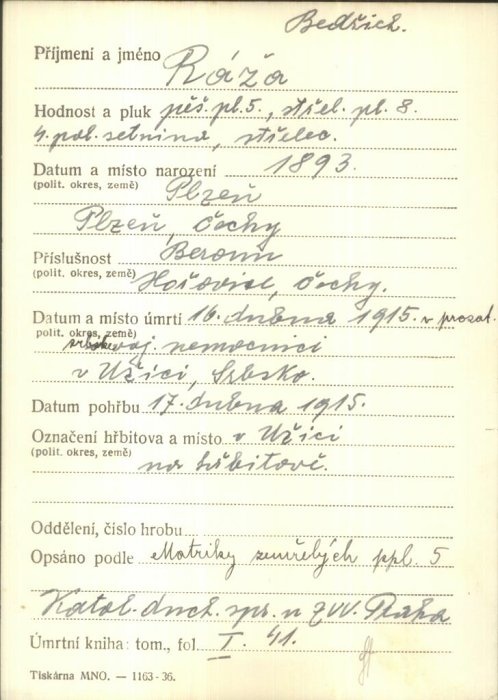 Bedřich.
Příjmení a jméno Ráža
Hodnost a pluk pěš. pl. 5., střel. pl. 8.
4. pol. setnina, střelec.
Datum a místo narození 1893.
(polit. okres, země) Plzeň
Plzeň, Čechy
Příslušnost Beroun
(polit. okres, země) Hořovice, Čechy.
Datum a místo úmrtí 16. dubna 1915. v prozat.
polit. okres, země) voj. nemocnici
v Užici, Srbsko.
Datum pohřbu 17. dubna 1915.
Označení hřbitova a místo v Užici
(polit. okres, země) na hřbitově.
Oddělení, číslo hrobu
Opsáno podle Matriky zemřelých ppl. 5
Katol. duch. spr. u ZVV. Praha
Úmrtní kniha: tom., fol. I. 41.
Tiskárna MNO. — 1163-36.